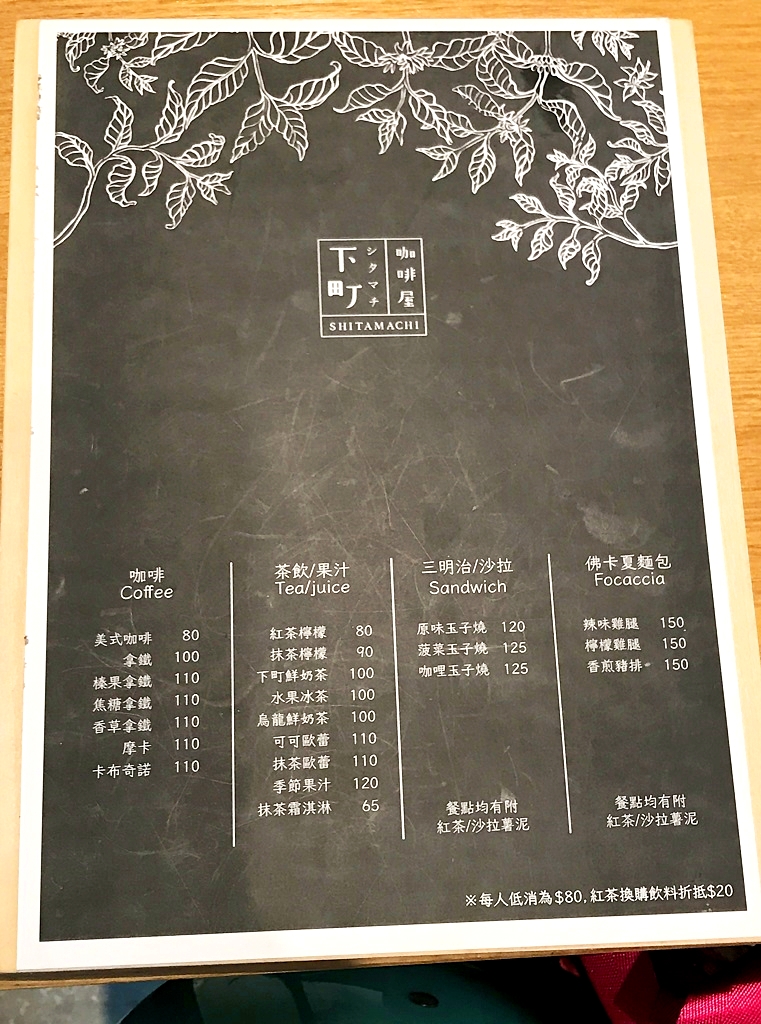 下町
シタマチ
咖啡屋
SHITAMACHI
咖啡
Coffee
美式咖啡 80
拿鐵 100
榛果拿鐵 110
焦糖拿鐵 110
香草拿鐵 110
摩卡 110
卡布奇諾 110
茶飲/果汁
Tea/juice
紅茶檸檬 80
抹茶檸檬 90
下町鮮奶茶 100
水果冰茶 100
烏龍鮮奶茶 100
可可歐蕾 110
抹茶歐蕾 110
季節果汁 120
抹茶霜淇淋 65
三明治/沙拉
Sandwich
原味玉子燒 120
菠菜玉子燒 125
咖哩玉子燒 125
餐點均有附
紅茶/沙拉薯泥
佛卡夏麵包
Focaccia
辣味雞腿 150
檸檬雞腿 150
香煎豬排 150
餐點均有附
紅茶/沙拉薯泥
※每人低消為$80,紅茶換購飲料折抵$20